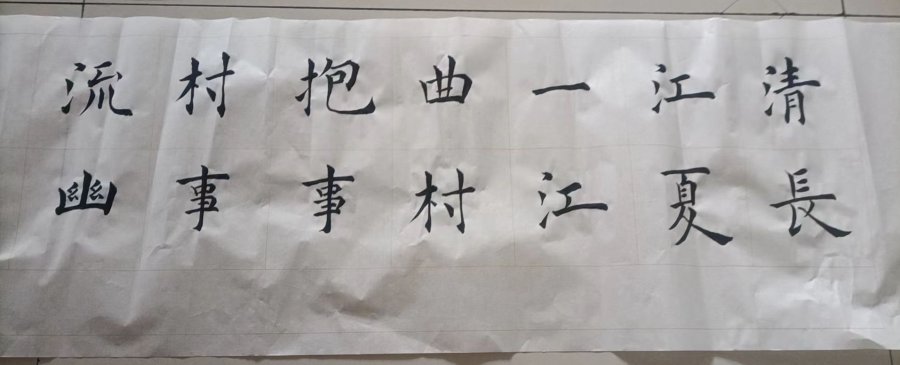 清江一曲抱村流
長夏江村事事幽